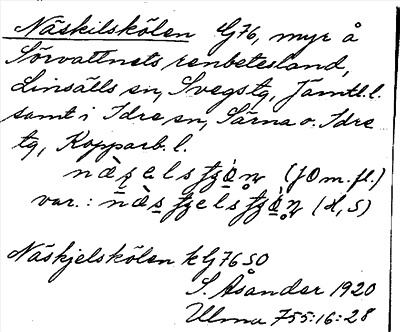 Näskilskölen G76, myr å
Sörvattnets renbetesland,
Linsälls sn, Svegs tg, Jämtl. l.
samt i Idre sn, Särna o. Idre
tg, Kopparb. l.
(JO m. fl.)
var.: (H, S)
Näskjelskölen k G76 SO
S. Åsander 1920
Ulma 755:16:28